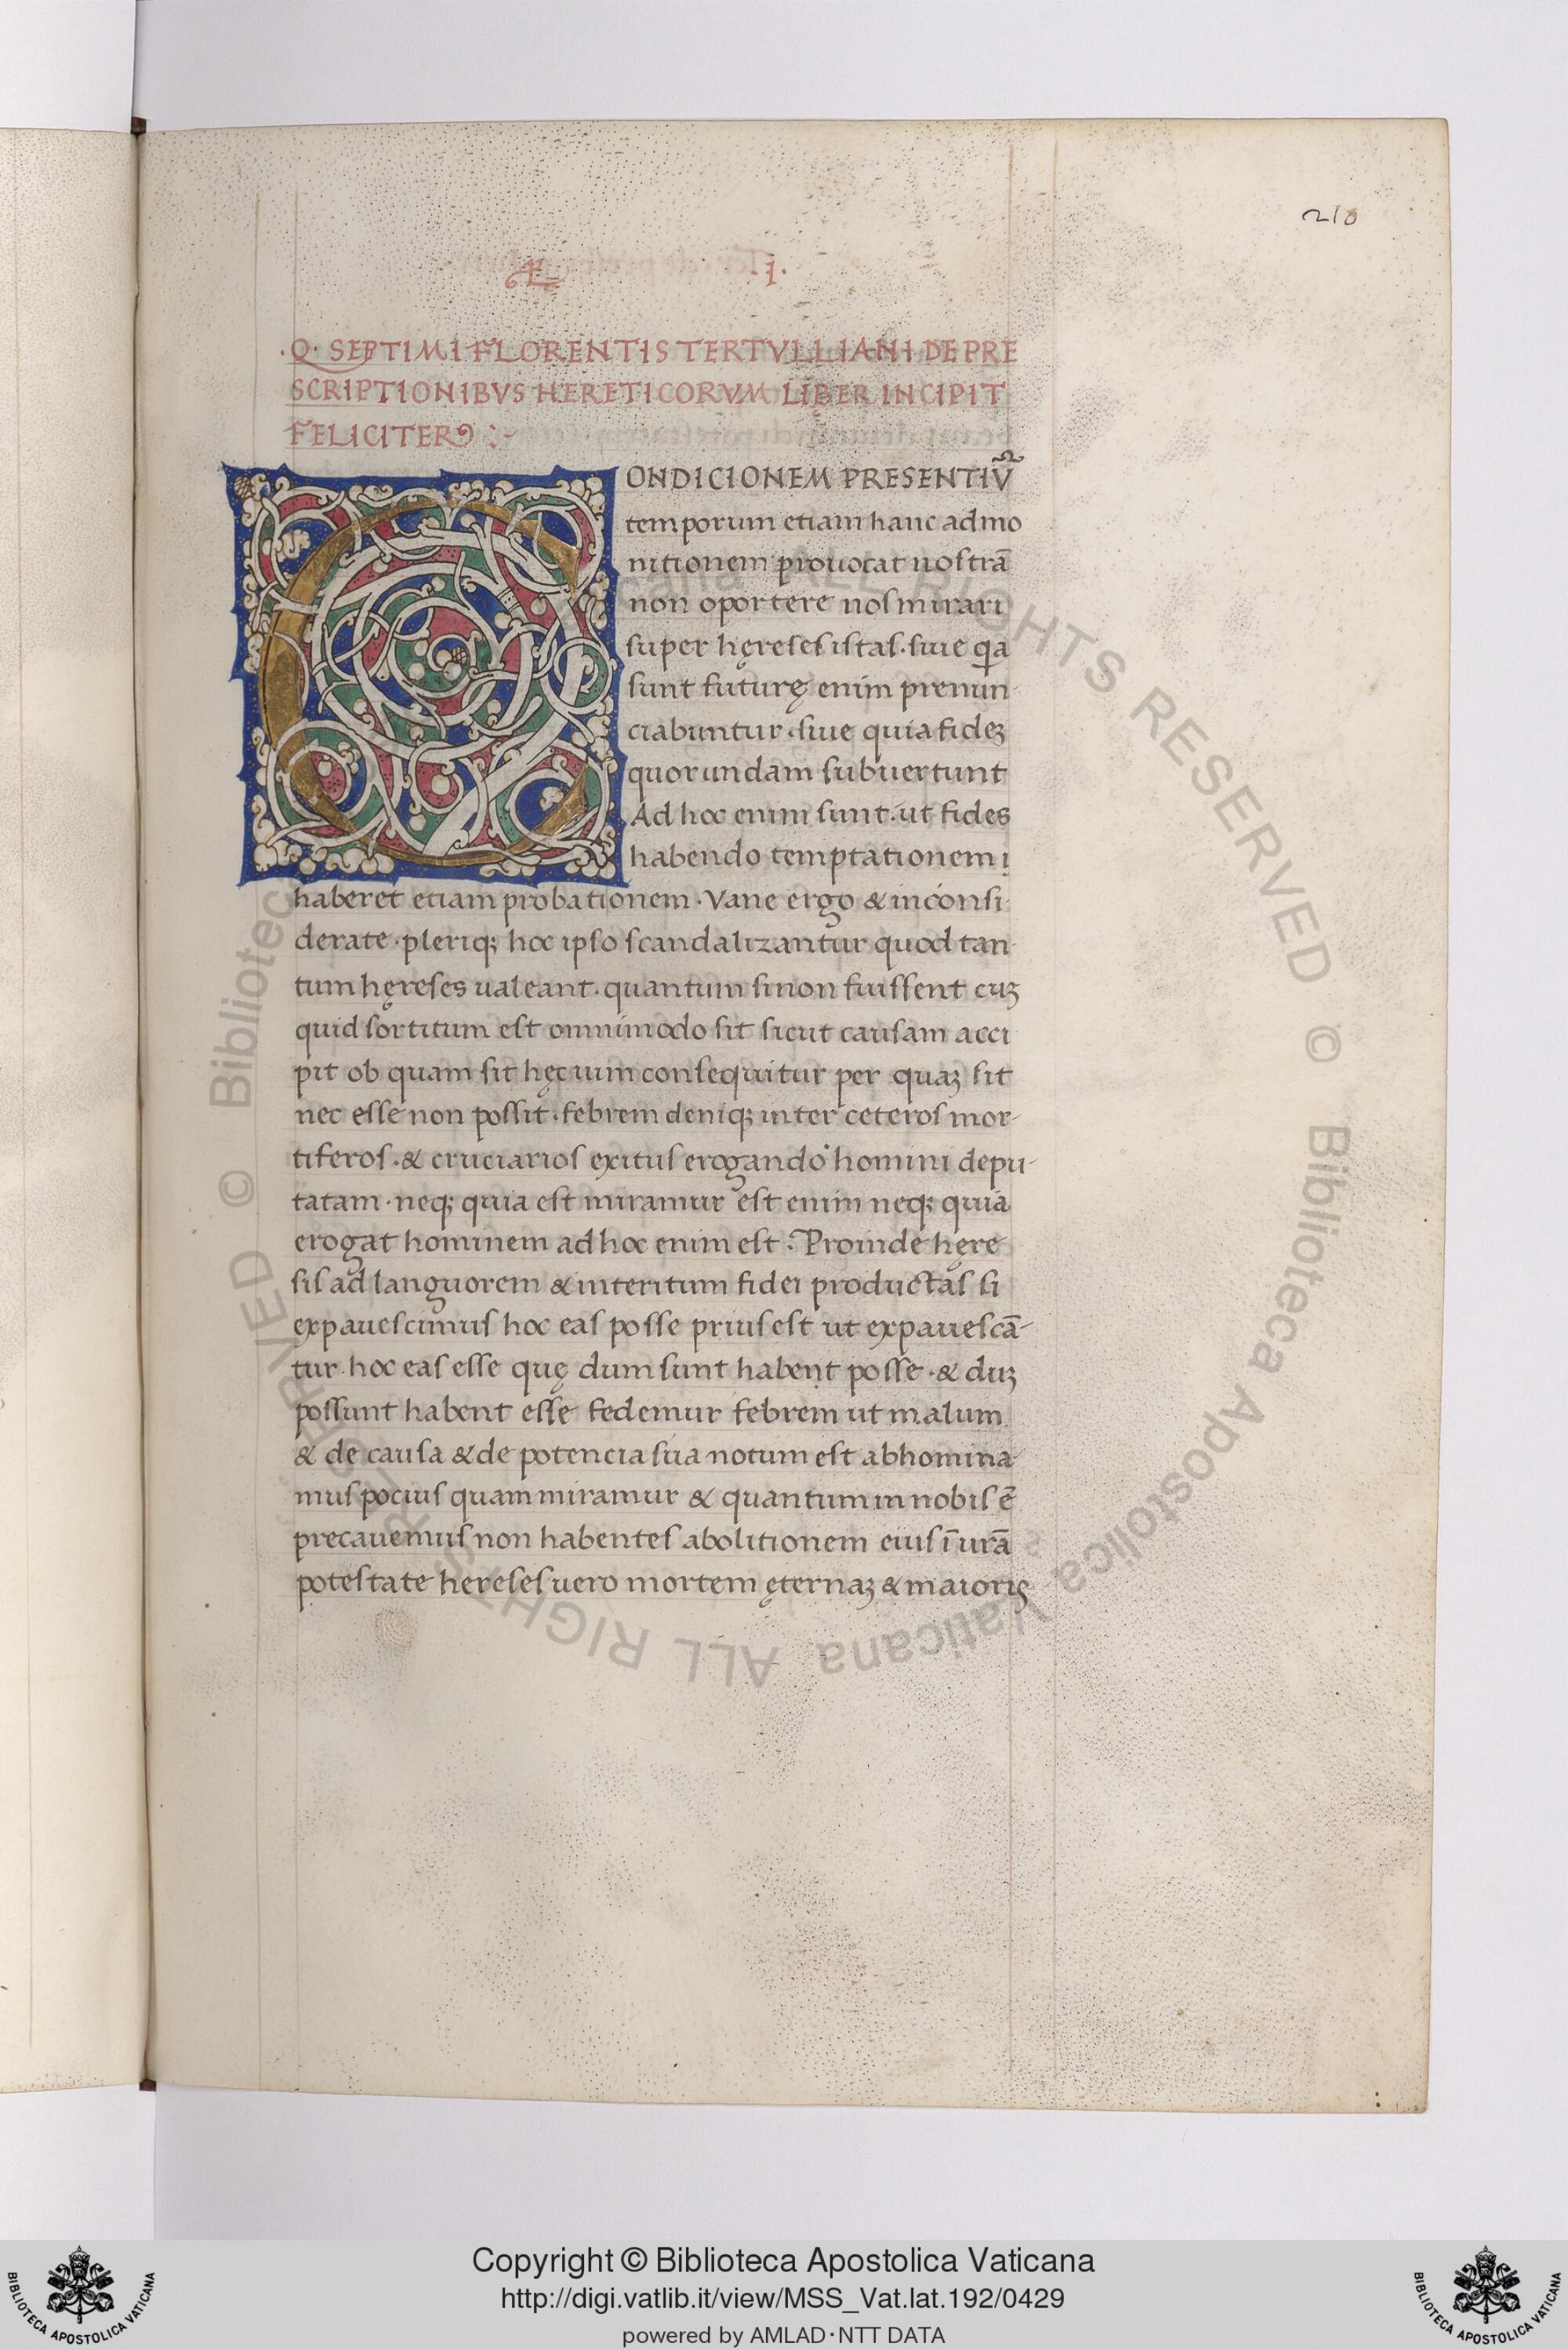 210
·I·
·Q· SEPTIMI FLORENTIS TERTVLLIANI DE PRE
SCRIPTIONIBVS HERETICORVM LIBER INCIPIT
FELICITER :-
CONDICIONEM PRESENTIṼ
temporum etiam hanc admo
nitionem prouocat nostrā
non oportere nos mirari
super hęreses istas· siue qa
sunt futurę enim prenun-
ciabuntur· siue quia fideꝫ
quorundam subuertunt
Ad hoc enim sunt· ut fides
habendo temptationem
haberet etiam probationem· Vane ergo & inconsi-
derate· pleriqꝫ hoc ipso scandalizantur quod tan-
tum hęreses ualeant· quantum si non fuissent cuꝫ
quid sortitum est omnimodo sit sicut causam acci
pit ob quam sit hęc uim consequitur per quaꝫ sit
nec esse non possit· febrem deniqꝫ inter ceteros mor-
tiferos· & cruciarios exitus erogando homini depu-
tatam· neqꝫ quia est miramur est enim neqꝫ quia
erogat hominem ad hoc enim est· Proinde hęre
sis ad languorem & interitum fidei productas si
expauescimus hoc eas posse prius est ut expauescā-
tur· hoc eas esse quę dum sunt habent posse· & duꝫ
possunt habent esse fedemur febrem ut malum
& de causa & de potencia sua notum est abhomina-
mus pocius quam miramur & quantum in nobis ē
precauemus non habentes abolitionem eius ī urā
potestate hereses uero mortem ęternaꝫ & maioris
© Biblioteca Apostolica Vaticana ALL RIGHTS RESERVED
Copyright © Biblioteca Apostolica Vaticana
http://digi.vatlib.it/view/MSS_Vat.lat.192/0429
powered by AMLAD·NTT DATA
BIBLIOTECA APOSTOLICA VATICANA
BIBLIOTECA APOSTOLICA VATICANA